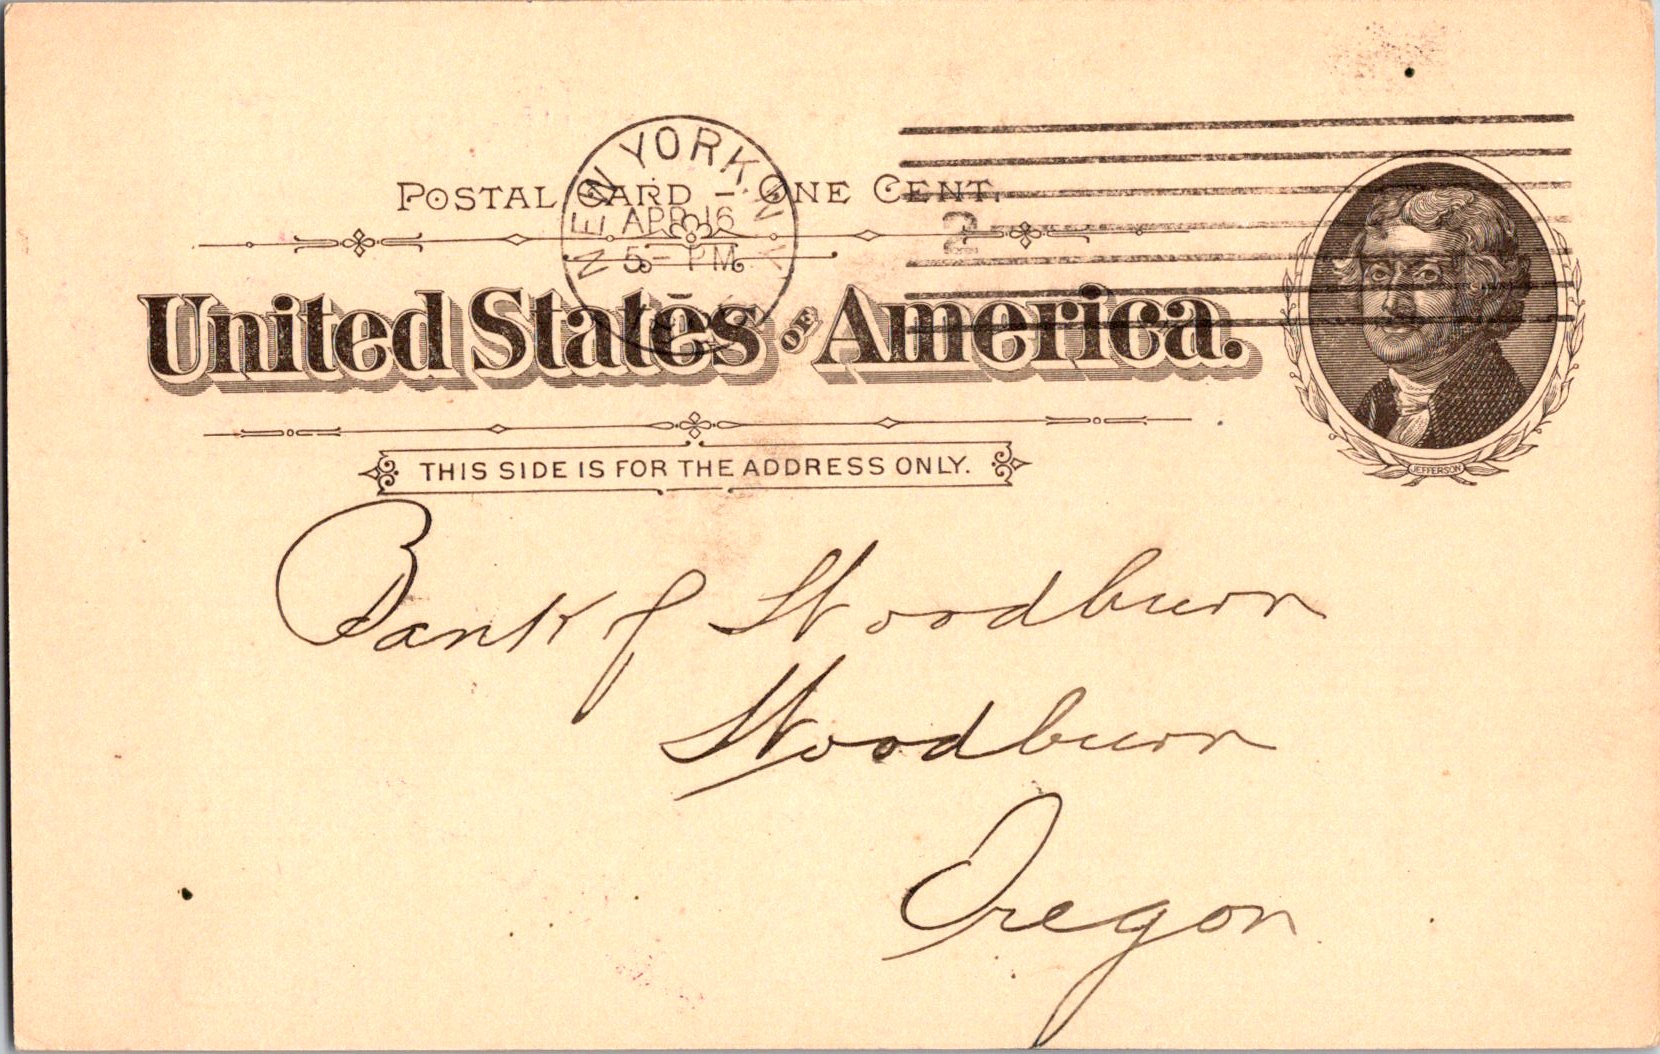 NEW YORK, N.Y.
APR 16
5 - PM
2
POSTAL CARD - ONE CENT.
United States OF America.
JEFFERSON
THIS SIDE IS FOR THE ADDRESS ONLY.
Bank of Woodburn
Woodburn
Oregon